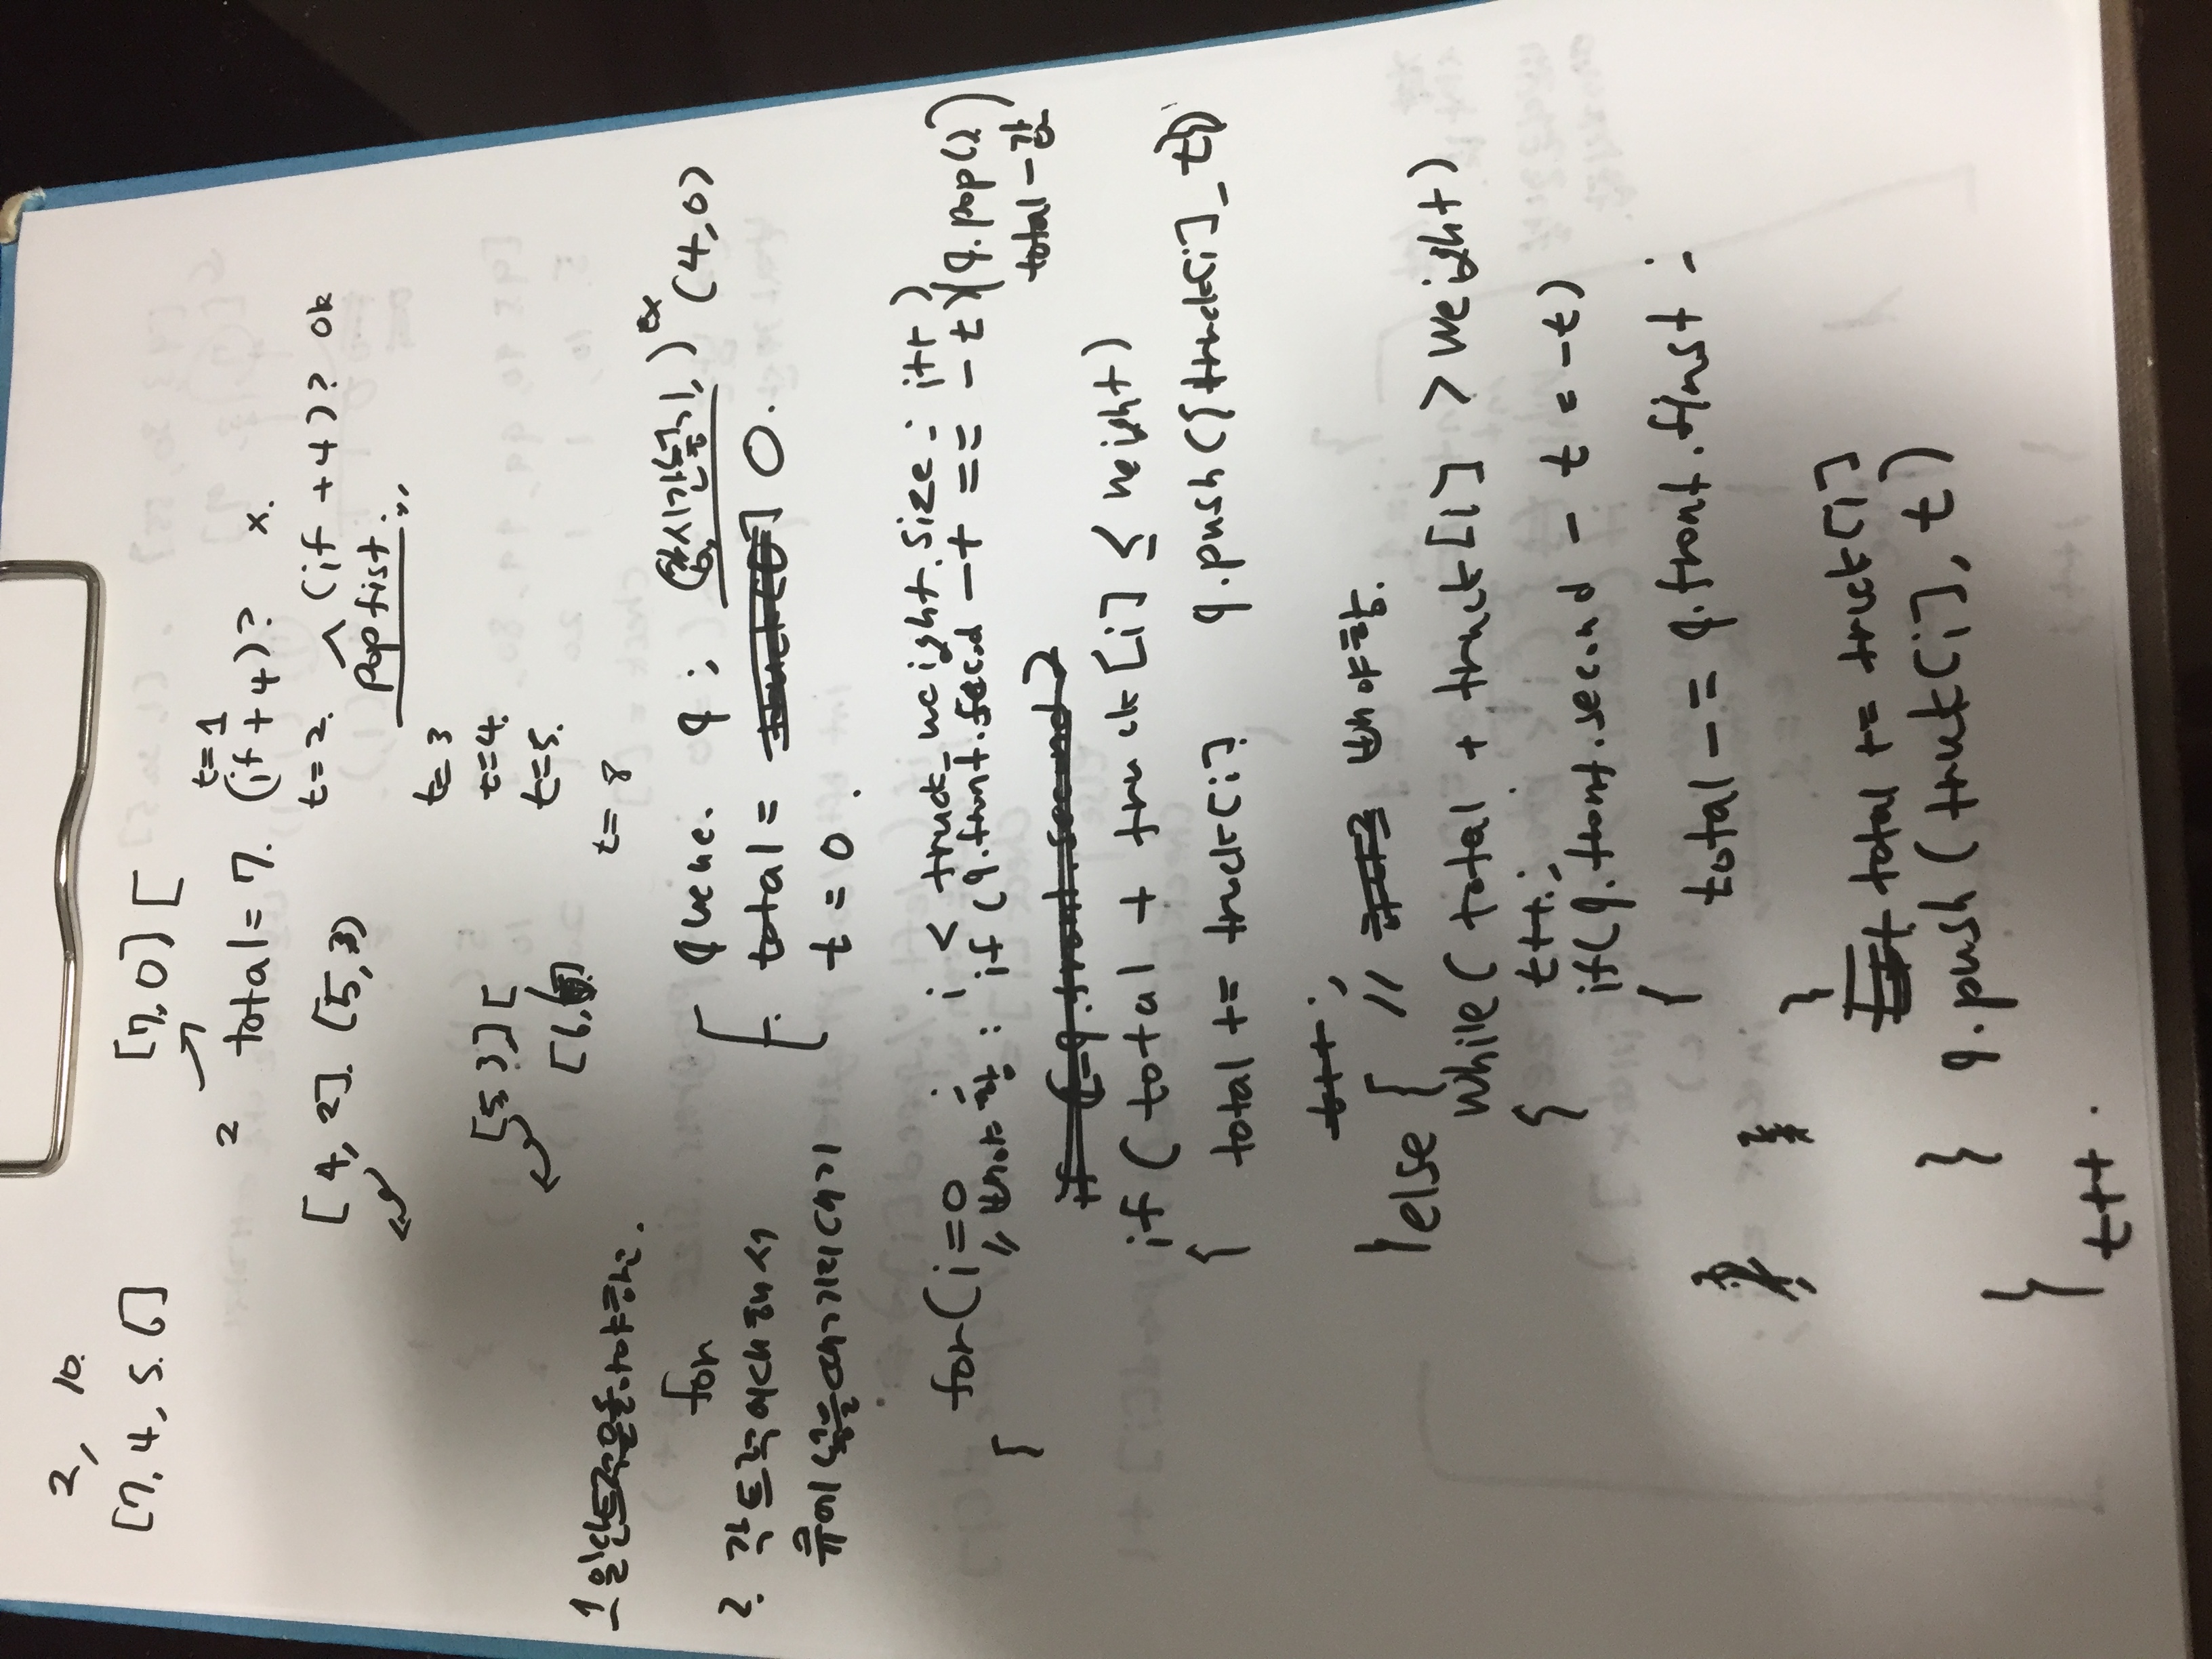 2, 10.
[7, 4, 5. 6]
[7, 0] [
2
t=1
total = 7. (if + 4)? x.
[4, 2]. (5, 3)
t=2. (if +4)? ok
pop fist.
t=3
[5 3,] [
t=4.
t=5.
[6,
t= 8
1 일단트럭은돌아야하고.
for
queue. q ; (값, 시간넣기,) ex (4,0)
2. 각 트럭에대해서
total = 0.
큐에 넣을때까지대기
t = 0.
for(i=0 ; i < truck_weight.size ; i++)
{
// 빼야 함 : if (q.front.second - t == -t) (q.pop())
total - 값
if (-q.front.second)
if ( total + truck [i] ≤ weight)
{ total += truck[i] q.push({truck[i]_ t})
t++ ;
} else { // 빼야함.
while ( total + truck[i] > weight)
{ t++ ;
if(q.front.second - t = -t)
{ total -= q.front.first ;
}
total += truck[i]
} q.push (truk[i], t)
} t++ .